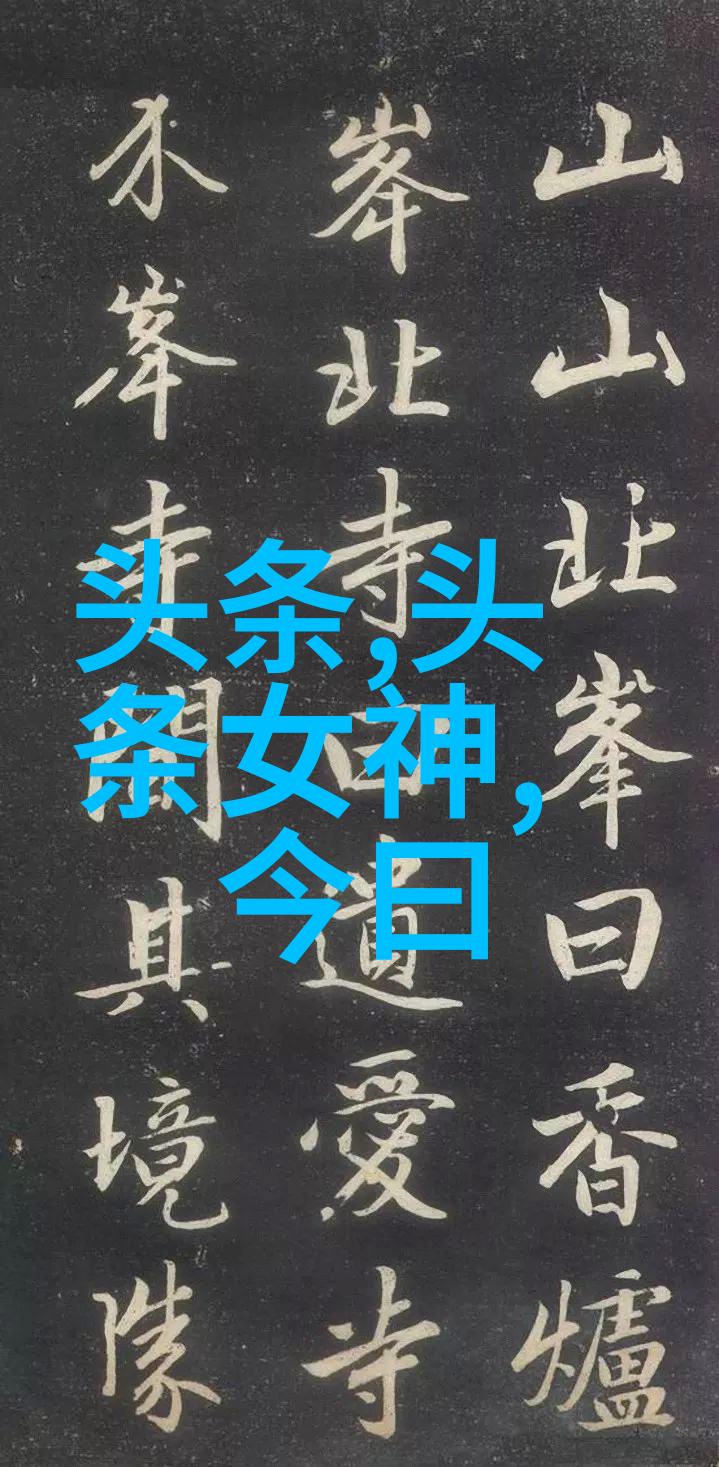 山山北峯曰香爐
峯北寺曰遺愛寺
介峯寺間其境勝
头条,头
条女神,
今曰